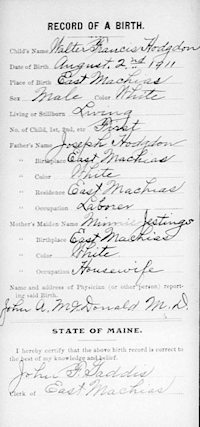 RECORD OF A BIRTH.
Child's Name Walter Francis Hodgdon
Date of Birth August 2nd 1911
Place of Birth East Machias
Sex Male Color White
Living or Stillborn Living
No. of Child, 1st, 2nd, etc First
Father's Name Joseph Hodgdon
" Birthplace East Machias
" Color White
" Residence East Machias
" Occupation Laborer
Mother's Maiden Name Minnie
" Birthplace East Machias
" Color White
" Occupation Housewife
Name and address of Physician (or other person) report-
ing said Birth.
John A. McDonald M.D.
STATE OF MAINE.
I hereby certify that the above birth record is correct to
the best of my knowledge and belief.
John F. Gaddis
Clerk of East Machias